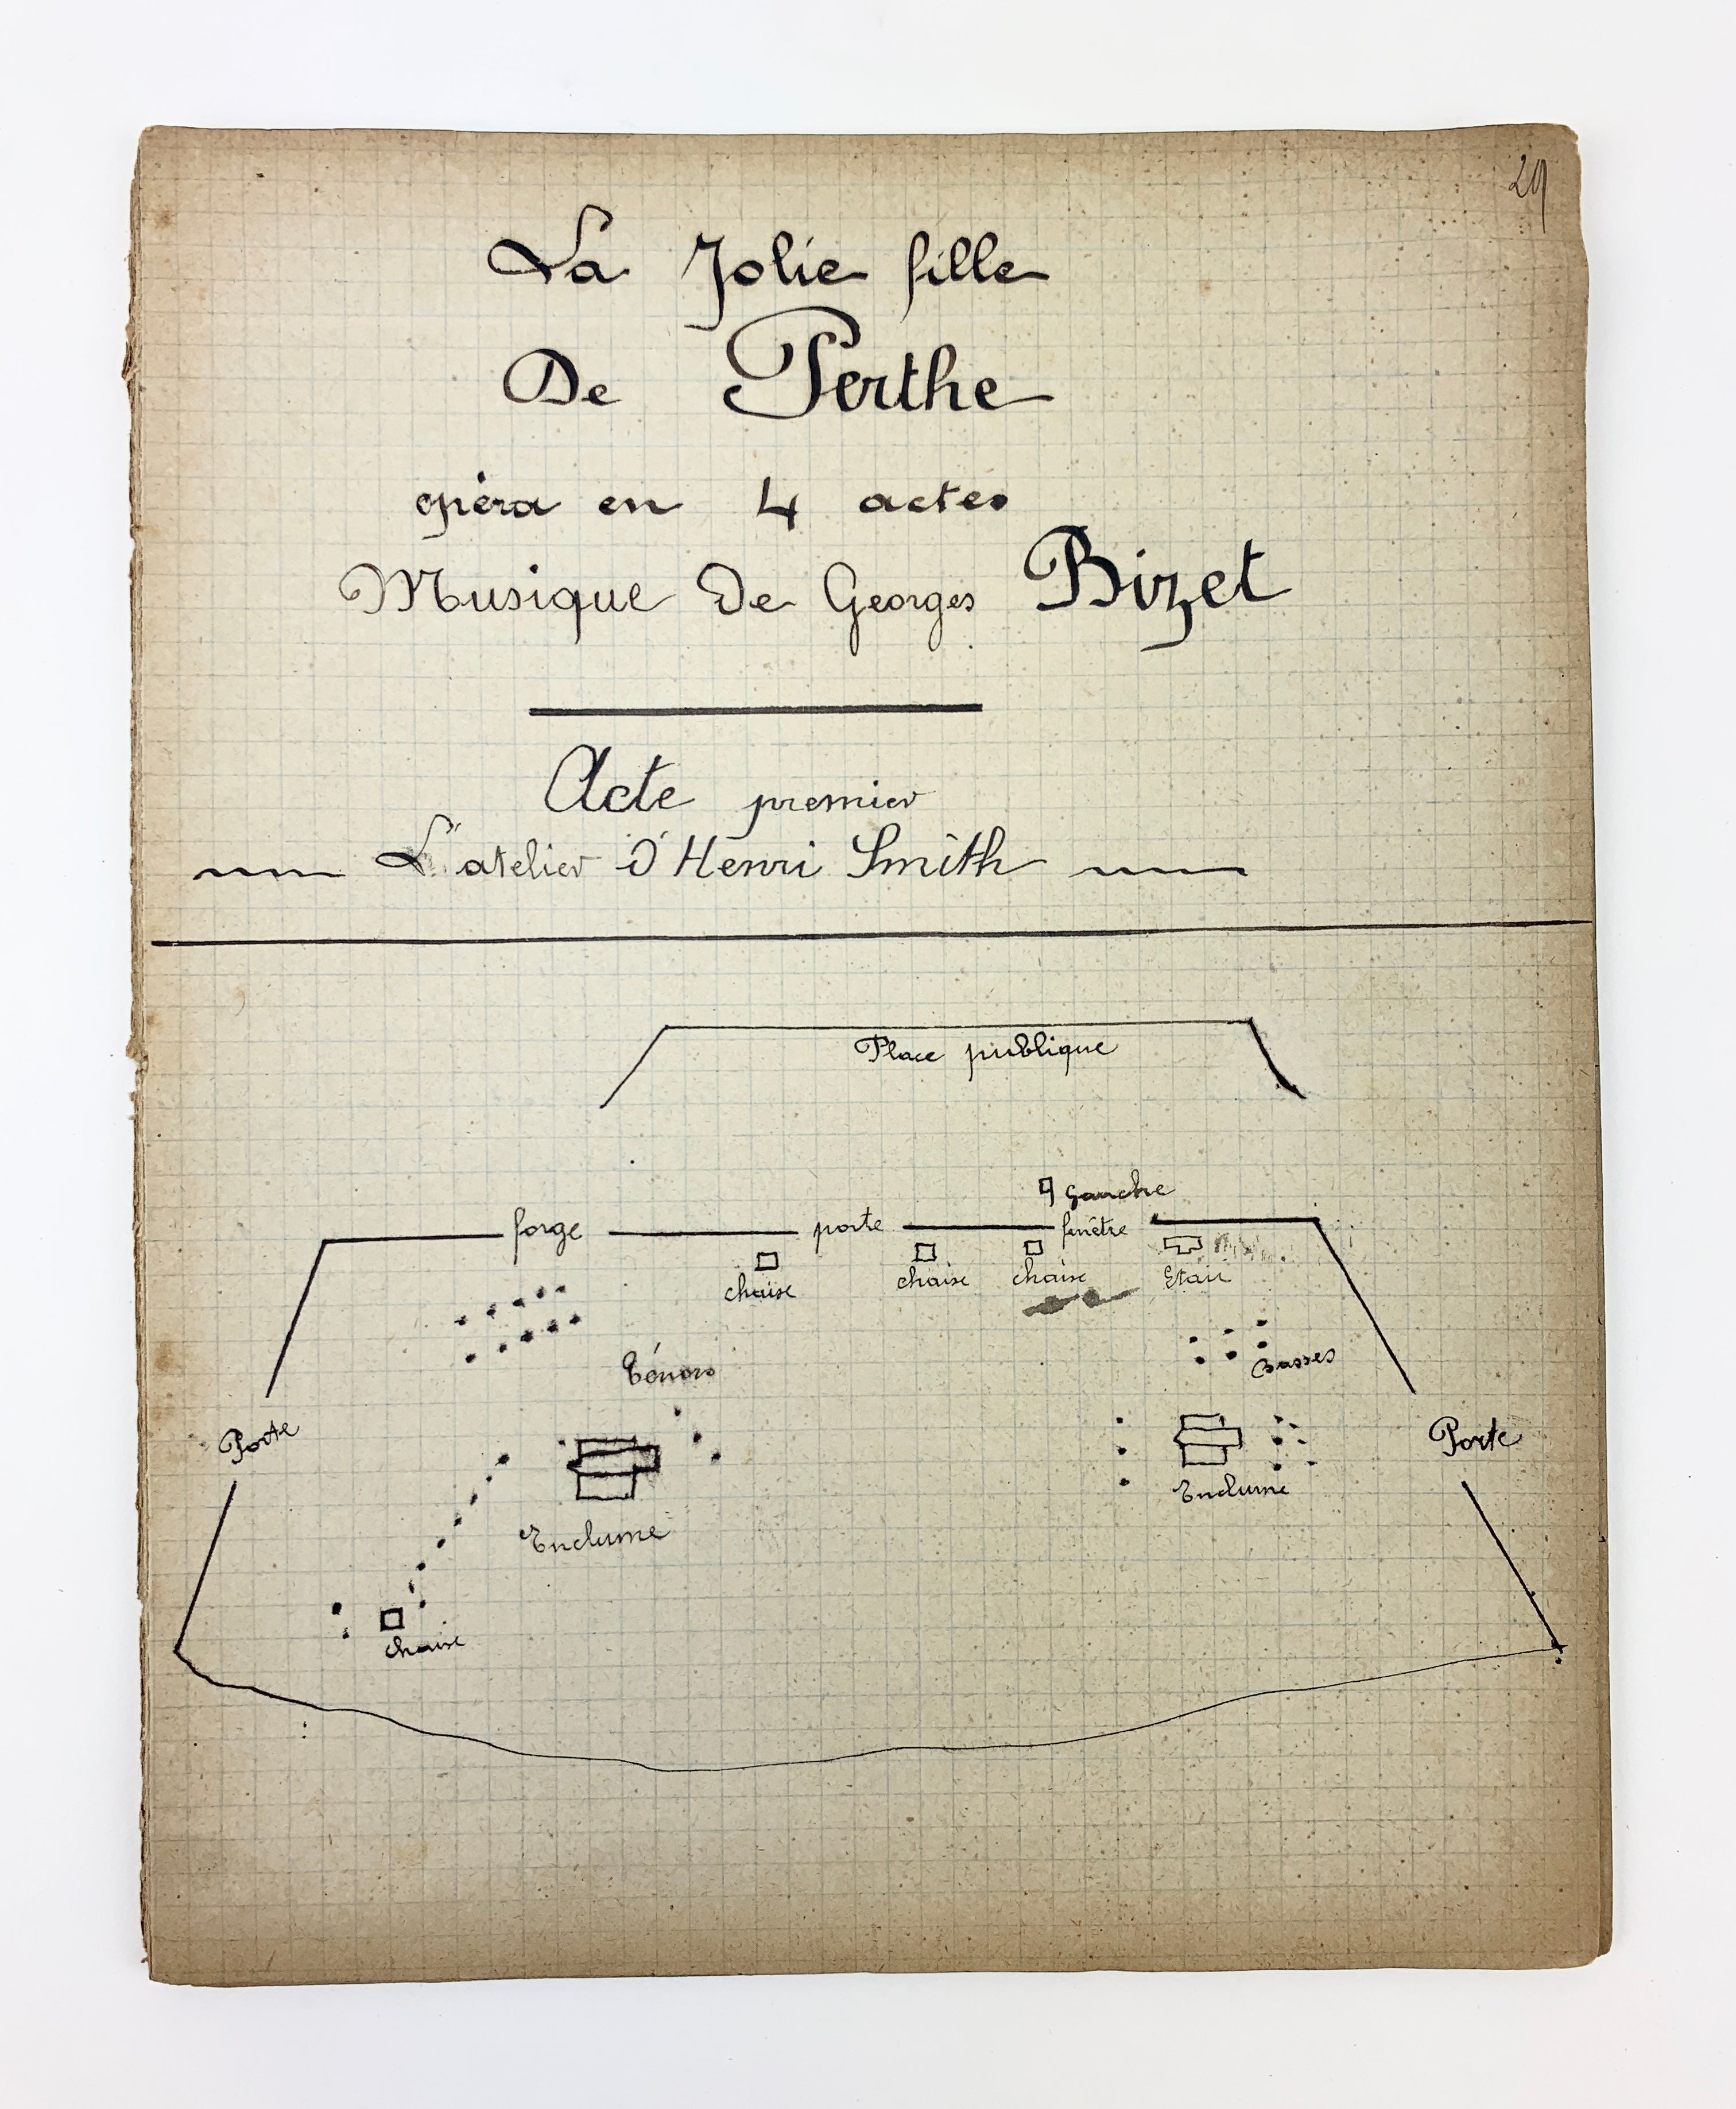 29
La Jolie fille
De Perthe
opéra en 4 actes
Musique De Georges Bizet
Acte premier
L'atelier d'Henri Smith
Place publique
Gauche
forge porte fenêtre
chaise chaise chaise Etau
Ténors Basses
Porte Porte
Enclume Enclume
chaise